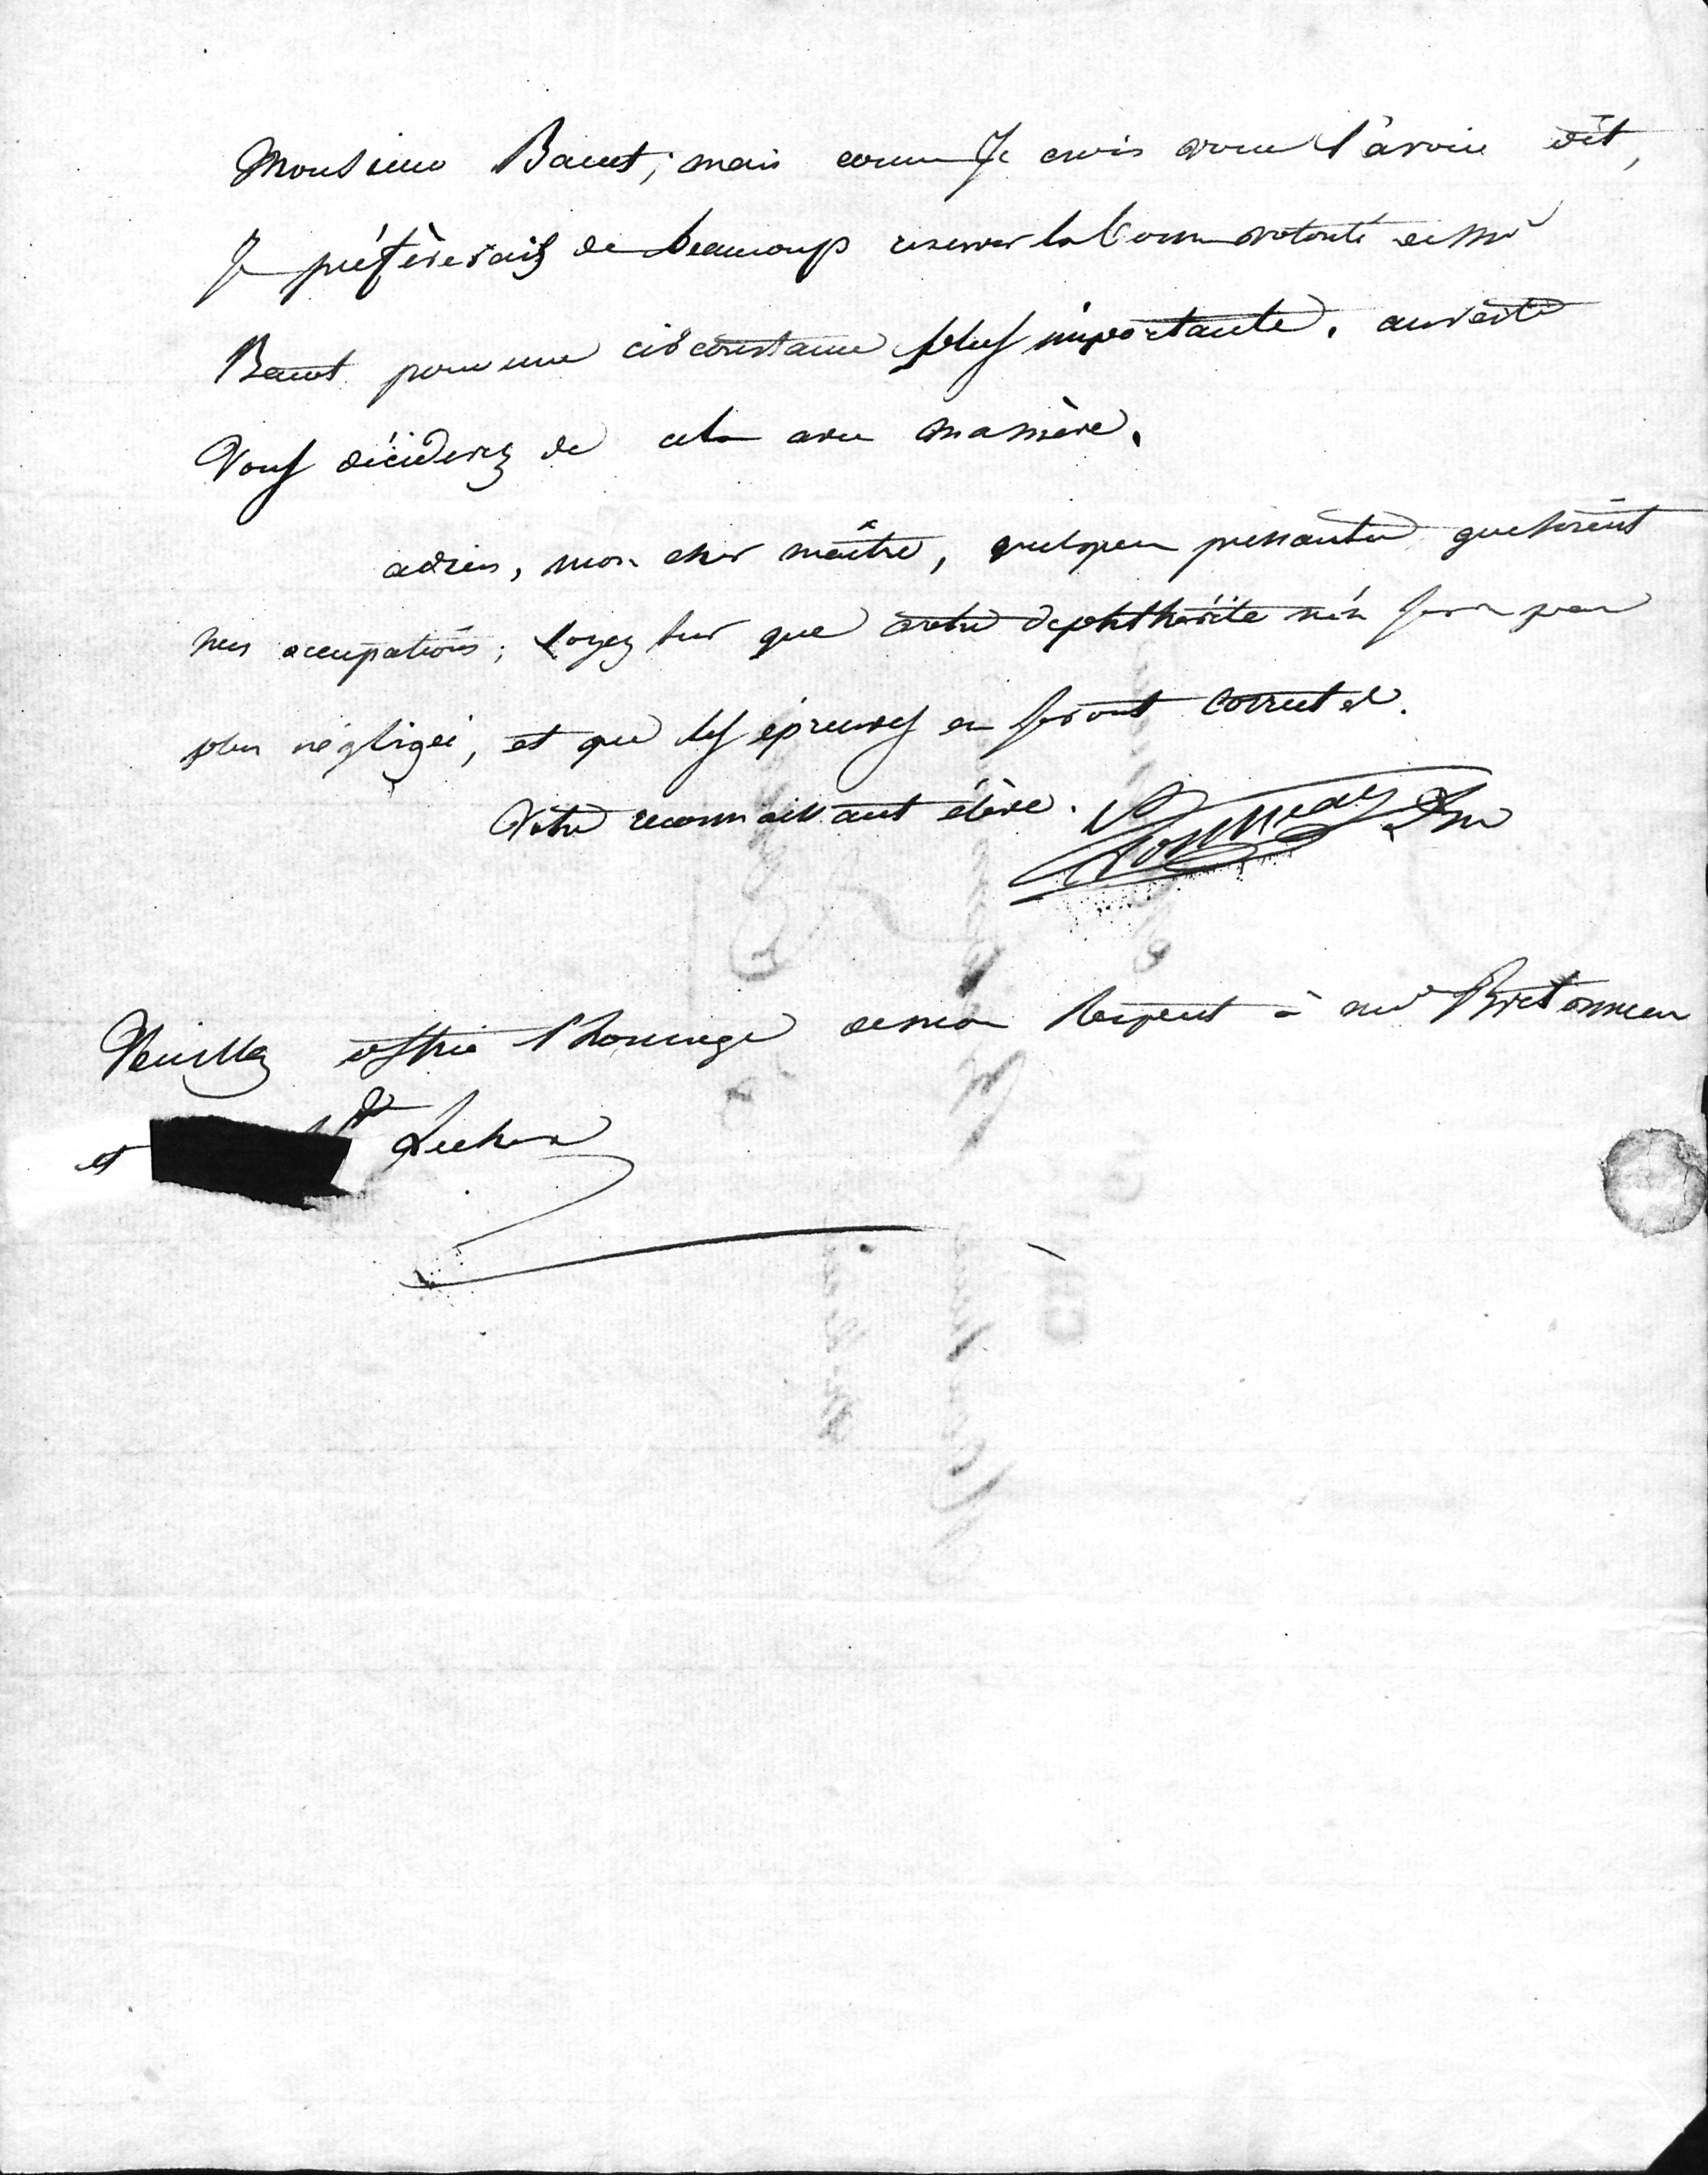 Monsieur Bacot; mais comme Je crois vous l'avoir dit,
Je préfèrerais de beaucoup reserver la bonne volonté de Mr
Bacot pour une circonstance plus importante. au reste
Vous déciderez de cela avec ma mère.
adieu, mon cher maître, quelque pressantes que soient
nos occupations; soyez sur que votre diphthérite n'en sera pas
plus négligée, et que les épreuves en seront correctes.
Votre reconnaissant élève.
Veuillez offrir l'homage de mon Respect à me Bretonneau
et